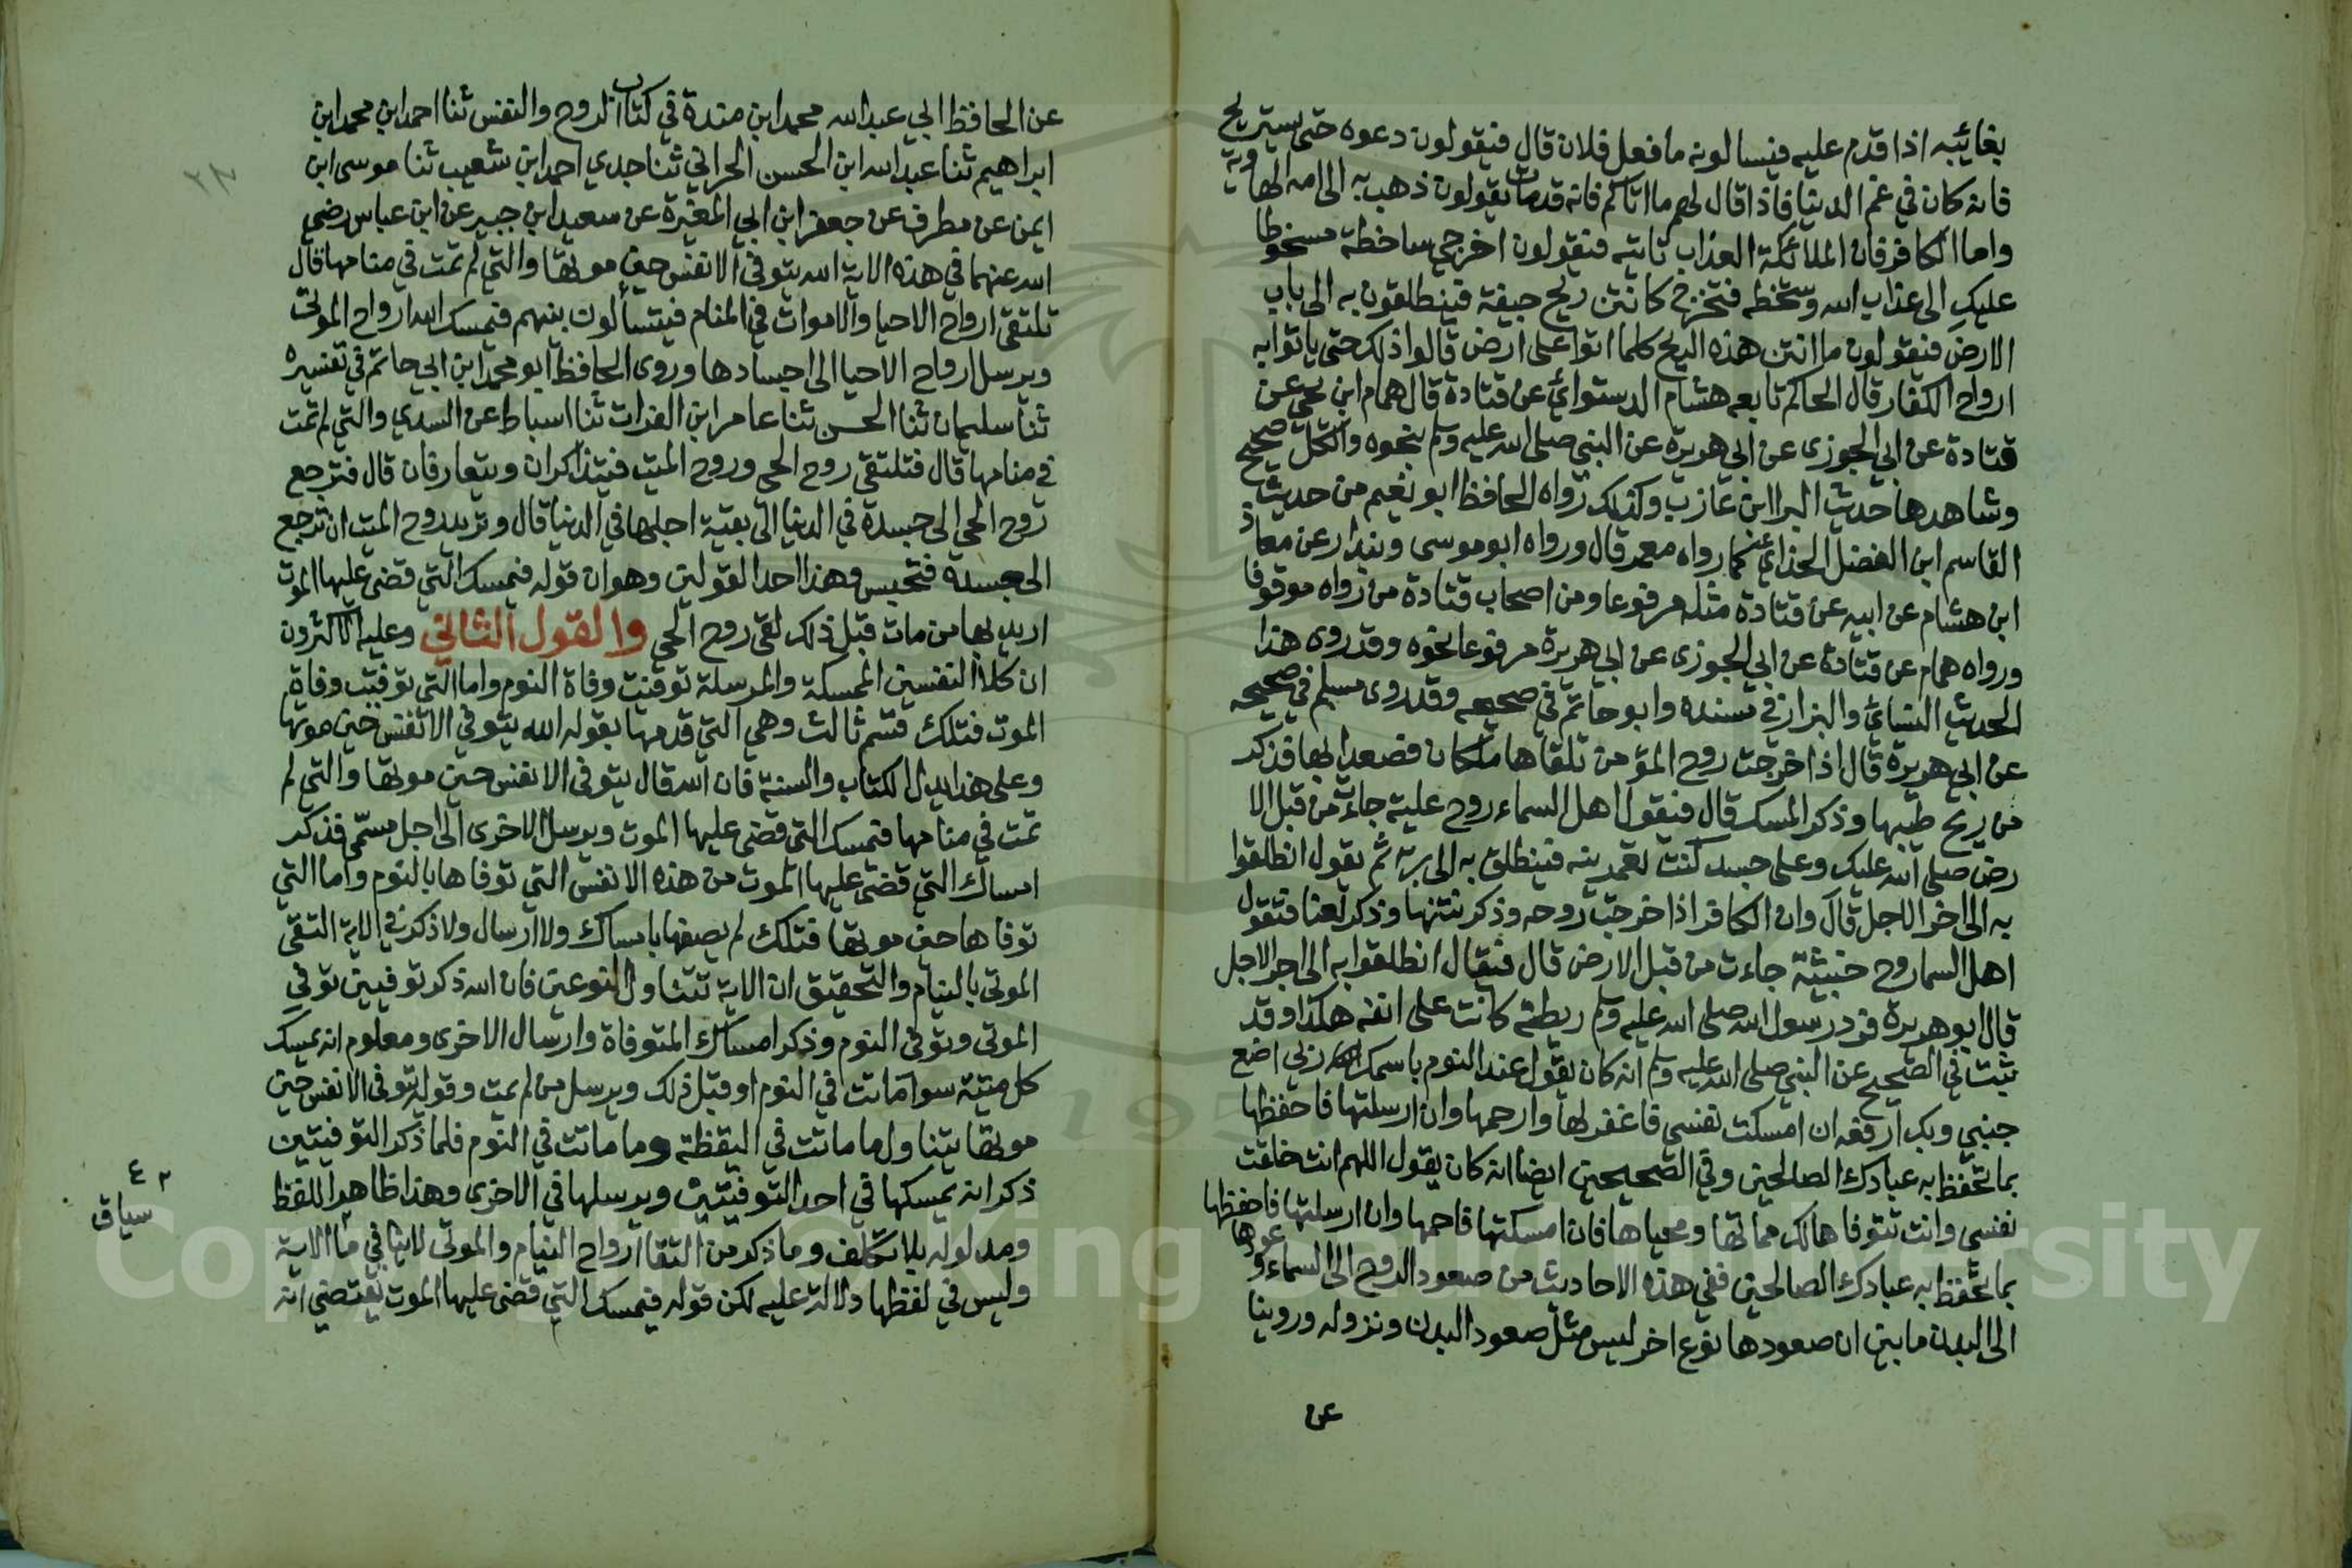 بغائبه اذا قدم عليه فيسالونه ما فعل فلان قال فيقولون دعوه حتى يستريح
فانه كان في غم الدنيا فاذا قال لهم ما اتاكم فانه قد مات يقولون ذهب به الى امه الهاوية
واما الكافر فان الملائكة العذاب تاتيه فتقولون اخرجي ساخطة مسخوطا
عليك الى عذاب الله وسخطه فتخرج كانتن ريح جيفة فينطلقون به الى باب
الارض فتقولون ما انتن هذه الريح كلما اتوا على ارض قالوا ذلك حتى ياتوا به
ارواح الكفار قال الحاكم تابعه هشام الدستوائي عن قتادة قال همام ابن يحي عن
قتادة عن ابي الجوزى عن ابي هريرة عن النبي صلى الله عليه وسلم بنحوه والكل صحيح
وشاهدها حديث البرا ابن عازب وكذلك رواه الحافظ ابو نعيم من حديث
القاسم ابن الفضل الحذاي كما رواه معمر قال ورواه ابو موسى وبندار عن معاذ
ابن هشام عن ابيه عن قتادة مثله مرفوعا ومن اصحاب قتادة من رواه موقوفا
ورواه همام عن قتادة عن ابي الجوزى عن ابي هريرة مرفوعا نحوه وقد روى هذا
الحديث النسائي والبزار في مسنده وابو حاتم في صحيحه وقد روى مسلم في صحيحه
عن ابي هريرة قال اذا خرجت روح المؤمن تلقاها ملكان فصعدا بها فذكر
من ريح طيبها وذكر المسك قال فتقول اهل السماء روح طيبة جاءت من قبل الا
رض صلى الله عليك وعلى جسد كنت تعمرينه فينطلق به الى ربه ثم يقول انطلقوا
به الى اخر الاجل قال وان الكافر اذا خرجت روحه وذكر نتنها وذكر لعنا فتقول
اهل السما روح خبيثة جاءت من قبل الارض قال فيقال انطلقوا به الى اخر الاجل
قال ابو هريرة فرد رسول الله صلى الله عليه وسلم ريطة كانت على انفه هكذا وقد
ثبت في الصحيح عن النبي صلى الله عليه وسلم انه كان يقول عند النوم باسمك ربي اضع
جنبي وبك ارفعه ان امسكت نفسي فاغفر لها وارحمها وان ارسلتها فاحفظها
بما تحفظ به عبادك الصالحين وفي الصحيحين ايضا انه كان يقول اللهم انت خلقت
نفسي وانت تتوفاها لك مماتها ومحياها فان امسكتها فارحمها وان ارسلتها فاحفظها
بما تحفظ به عبادك الصالحين ففي هذه الاحاديث من صعود الروح الى السماء وعودها
الى البدن ما بين ان صعودها نوع اخر ليس مثل صعود البدن ونزوله وروينا
عن
عن الحافظ ابي عبد الله محمد ابن مندة في كتاب الروح والنفس ثنا احمد ابن محمد ابن
ابراهيم ثنا عبد الله ابن الحسن الحراني ثنا جدي احمد ابن شعيب ثنا موسى ابن
ايمن عن مطرف عن جعفر ابن ابي المغيرة عن سعيد ابن جبير عن ابن عباس رضي
الله عنهما في هذه الاية الله يتوفى الانفس حين موتها والتي لم تمت في منامها قال
تلتقي ارواح الاحيا والاموات في المنام فيتسألون بينهم فيمسك الله ارواح الموتى
ويرسل ارواح الاحيا الى اجسادها وروى الحافظ ابو محمد ابن ابي حاتم في تفسيره
ثنا سليمان ثنا الحسن ثنا عامر ابن الفرات ثنا اسباط عن السدي والتي لم تمت
في منامها قال فتلتقي روح الحي وروح الميت فيتذاكران ويتعارفان قال فترجع
روح الحي الى جسده في الدنيا الى بقية اجلها في الدنيا قال وتريد روح الميت ان ترجع
الى جسده فتحبس وهذا احد القولين وهو ان قوله فيمسك التي قضى عليها الموت
اريد بها من مات قبل ذلك لقى روح الحي والقول الثاني وعليه الاكثرون
ان كلا النفسين الممسكة والمرسلة توفيت وفاة النوم واما التي توفيت وفاة
الموت فتلك قسم ثالث وهي التي قدمها بقوله الله يتوفى الانفس حين موتها
وعلى هذا يدل الكتاب والسنة فان الله قال يتوفى الانفس حين موتها والتي لم
تمت في منامها فيمسك التي قضى عليها الموت ويرسل الاخرى الى اجل مسمى فذكر
امساك التي قضى عليها الموت من هذه الانفس التي توفاها بالنوم واما التي
توفاها حين موتها فتلك لم يصفها بامساك ولا ارسال ولا ذكر في الاية التقى
الموتى بالنيام والتحقيق ان الاية تتناول النوعين فان الله ذكر توفيتين توفي
الموتى وتوفى النوم وذكر امساك المتوفاة وارسال الاخرى ومعلوم انه يمسك
كل ميتة سوا ماتت في النوم او قبل ذلك ويرسل من لم يمت وقوله يتوفى الانفس حين
موتها يتناول ما ماتت في اليقظة وما ماتت في النوم فلما ذكر التوفيتين
ذكر انه يمسكها في احد التوفيتين ويرسلها في الاخرى وهذا ظاهر اللفظ
ومدلوله بلا تكلف وما ذكر من التقا ارواح النيام والموتى لا ينافي ما الاية
وليس في لفظها دلالة عليه لكن قوله فيمسك التي قضى عليها الموت يقتضي انه
سياق
Copyright © King Saud University
1957